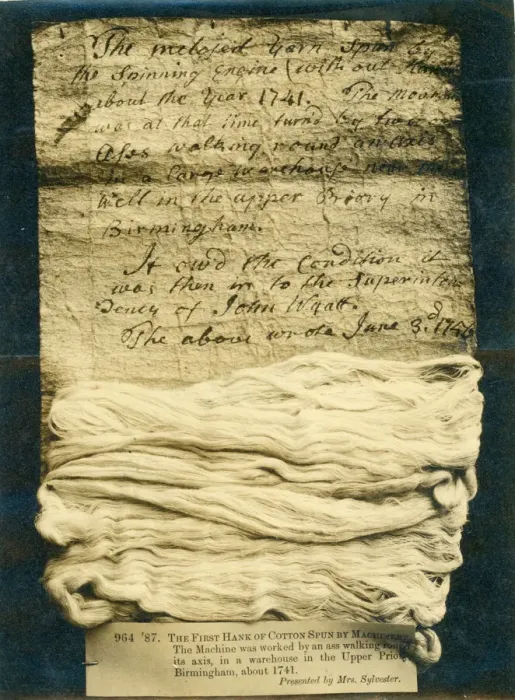 The inclosed Yarn Spun by
the Spinning Engine (with out
about the Year 1741. The
was at that time turn'd by two
Asses walking round an
in a large warehouse near the
Well in the upper Priory in
Birmingham.
It ow'd the Condition it
was then in to the Superinten
dency of John Wyatt.
The above wrote June 3.d
964 '87. THE FIRST HANK OF COTTON SPUN BY
The Machine was worked by an ass walking round
its axis, in a warehouse in the Upper
Birmingham, about 1741.
Presented by Mrs. Sylvester.